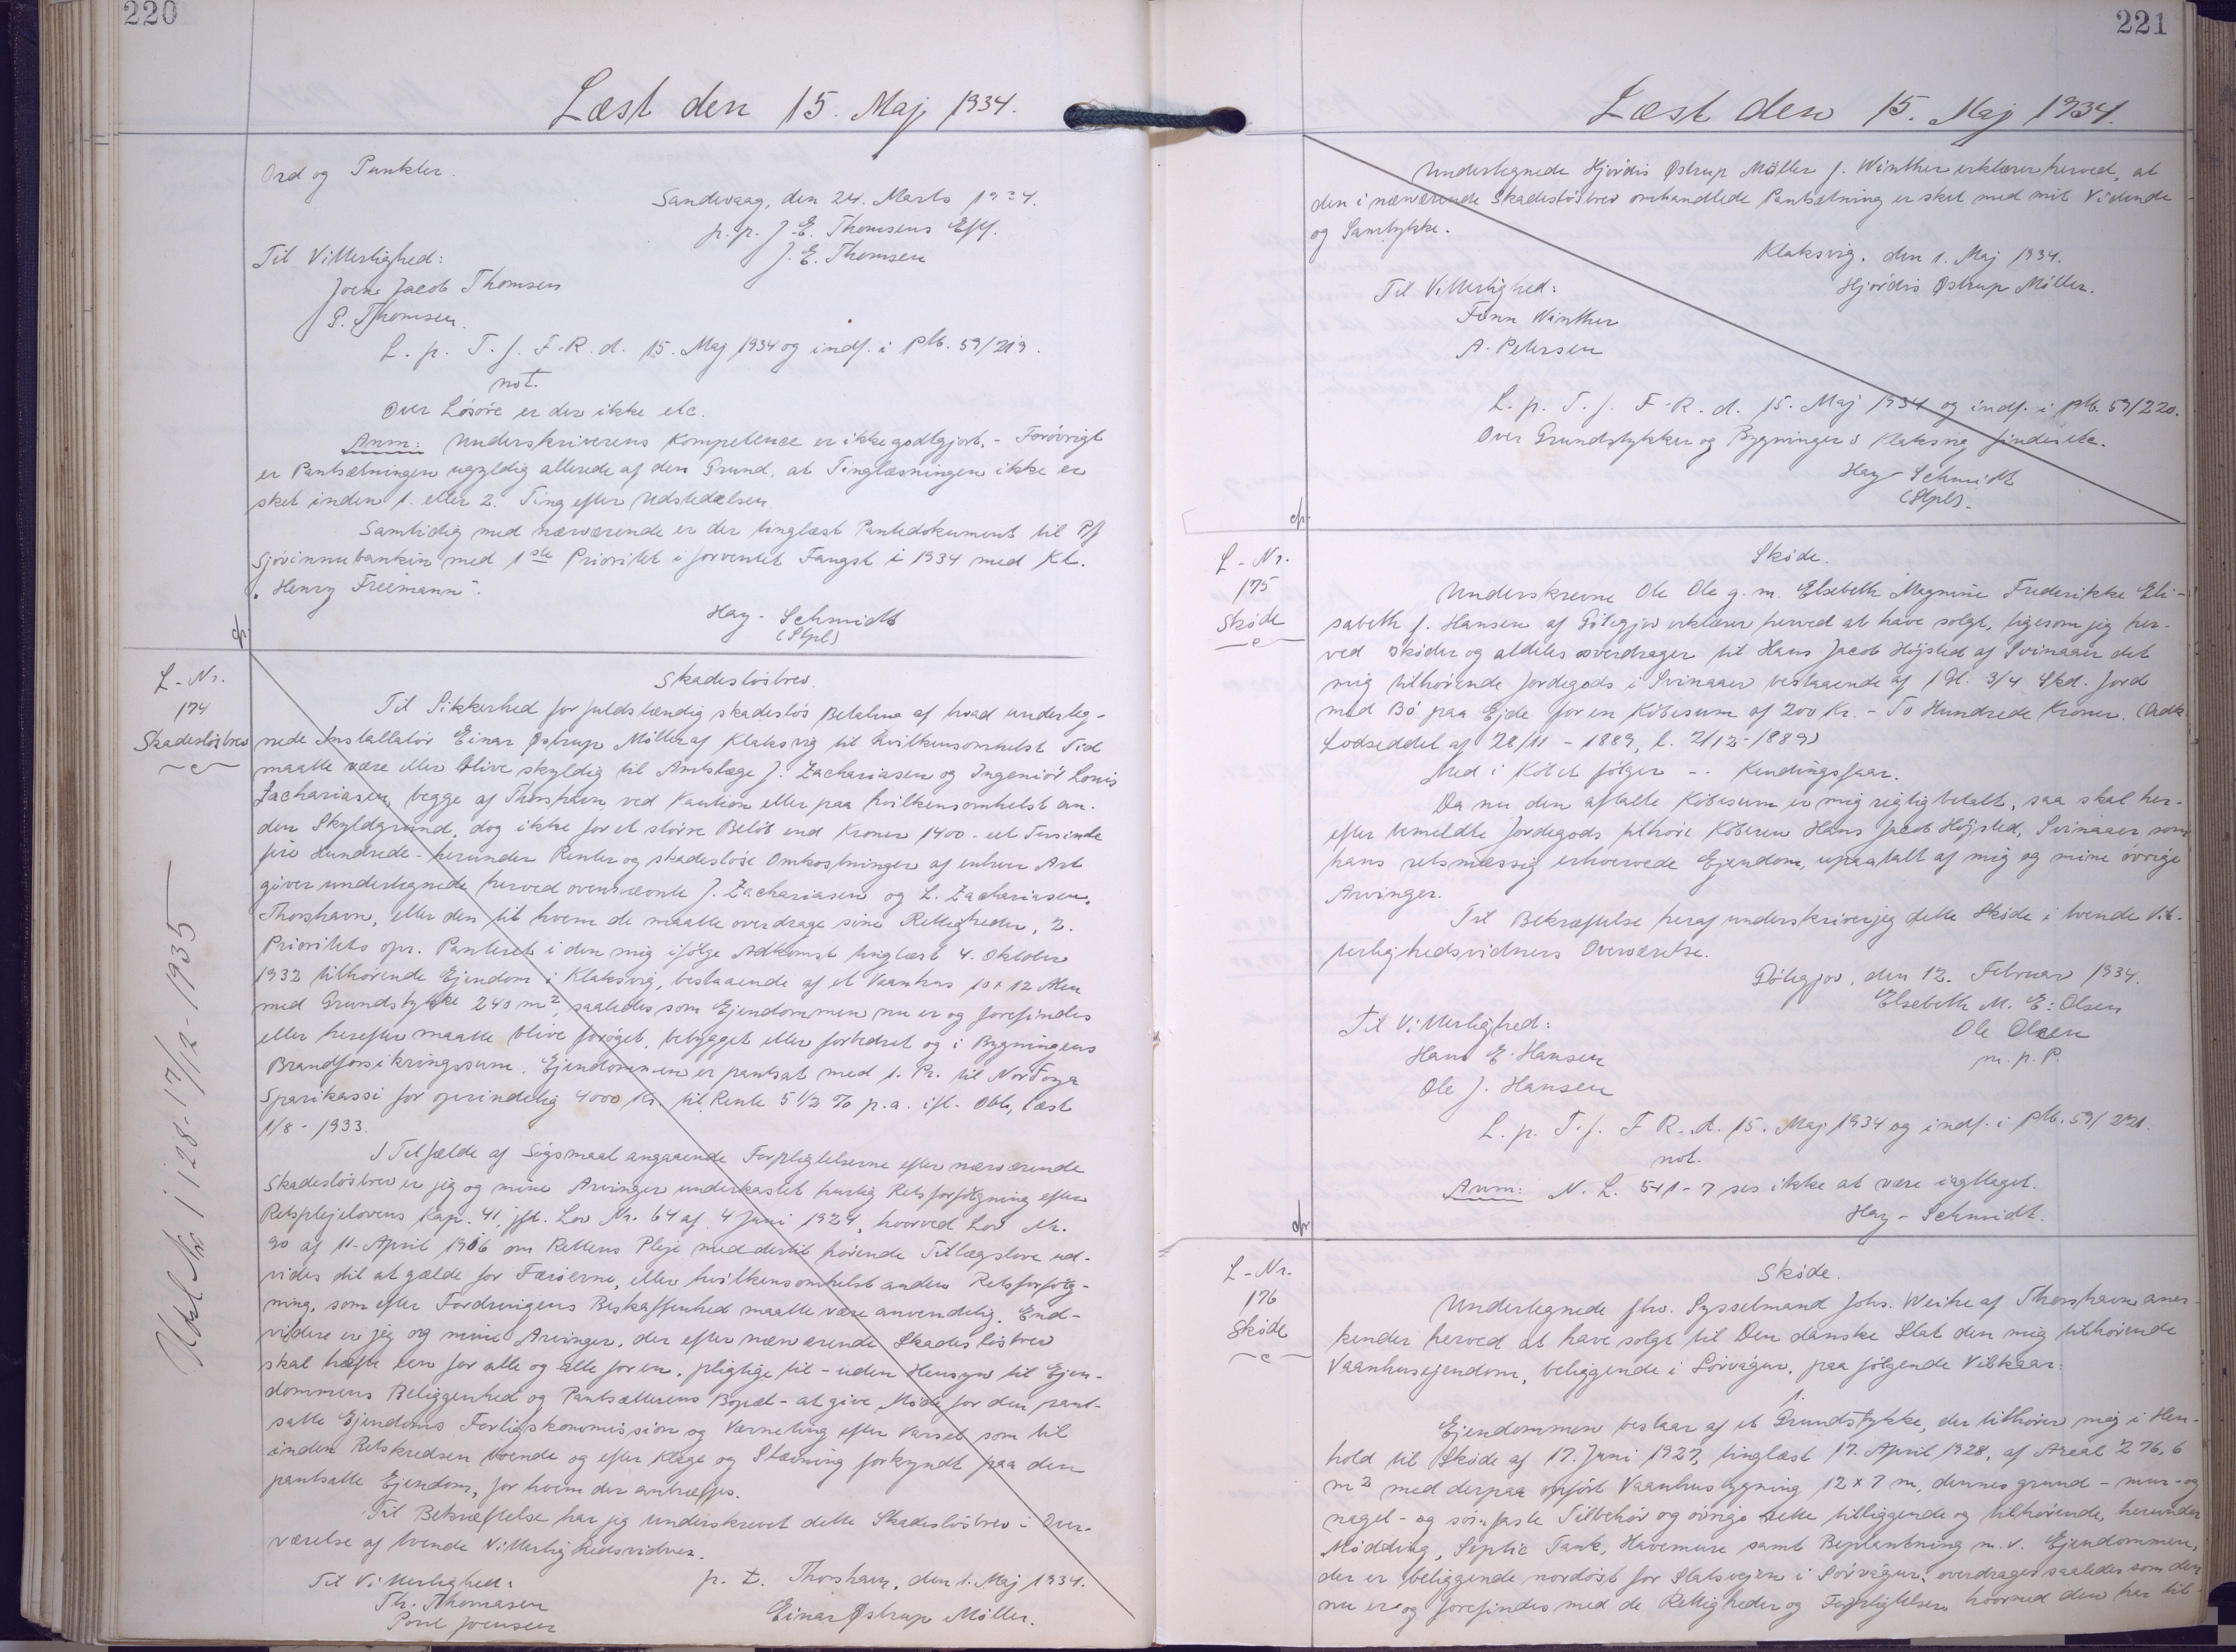 220
Læst den 15. Maj 1934.
Ord og Punkter.
Sandevaag, den 24. Marts 1934.
p. p. J. E. Thomsens Eff.
J. E. Thomsen
Til Vitterlighed:
Joen Jacob Thomsen
P. Thomsen.
L. p. T. f. F. R. d. 15. Maj 1934 og indf. i ptb. 59/219.
not.
Over Løsøre er der ikke etc.
Anm: Underskriverens Kompetence er ikke godtgjort. - Forøvrigt
er Pantsætningen ugyldig allerede af den Grund, at Tinglæsningen ikke er
sket inden 1. eller 2. Ting efter Udstedelsen
Samtidig med nærværende er der tinglæst Pantedokument til P/f
Sjóvinnubankin med 1ste Prioritet i forventet Fangst i 1934 med Kt.
"Henry Freemann".
Hay-Schmidt
(Stpl)
cfr
L-Nr.
174
Skadesløsbrev
Skadesløsbrev.
Til Sikkerhed for fuldstændig skadesløs Betaling af hvad underteg-
nede Installatør Einar Østrup Møller af Klaksvig til hvilkensomhelst Tid
maatte være eller blive skyldig til Amtslæge J. Zachariasen og Ingeniør Louis
Zachariasen, begge af Thorshavn, ved Kaution eller paa hvilkensomhelst an-
den Skyldgrund, dog ikke for et større Beløb end Kroner 1400 - eet Tusinde
fire Hundrede - herunder Renter og skadesløse Omkostninger af enhver Art
giver undertegnede herved ovennævnte J. Zachariasen og L. Zachariasen,
Thorshavn, eller den til hvem de maatte overdrage sine Rettigheder, 2.
Prioritets opr. Panteret i den mig ifølge Adkomst tinglæst 4. Oktober
1932 tilhørende Ejendom i Klaksvig, bestaaende af et Vaanhus 10 x 12 Alen
med Grundstykke 240 m², saaledes som Ejendommen nu er og forefindes
eller herefter maatte blive forøget, bebygget eller forbedret og i Bygningens
Brandforsikringssum. Ejendommen er pantsat med 1. Pr. til Norðoya
Sparikassi for oprindelig 4000 Kr. til Rente 5 1/2 % p.a. ifl. Obl., læst
1/8 - 1933.
I Tilfælde af Søgsmaal angaaende Forpligtelserne efter nærværende
Skadesløsbrev er jeg og mine Arvinger underkastet hurtig Retsforfølgning efter
Retsplejelovens Kap. 41, jfr. Lov Nr. 64 af 4 Juni 1924, hvorved Lov Nr.
90 af 11-April 1916 om Rettens Pleje med dertil hørende Tillægslove ud-
vides til at gælde for Færøerne, eller hvilkensomhelst anden Retsforfølg-
ning, som efter Fordringens Beskaffenhed maatte være anvendelig. End-
videre er jeg og mine Arvinger, der efter nærværende Skadesløsbrev
skal hæfte een for alle og alle for en, pligtige til - uden Hensyn til Ejen-
dommens Beliggenhed og Pantsætterens Bopæl - at give Møde for den pant-
satte Ejendoms Forligskommission og Værneting efter Varsel som til
inden Retskredsen boende og efter Klage og Stævning forkyndt paa den
pantsatte Ejendom, for hvem der antræffes.
Til Bekræftelse har jeg underskrevet dette Skadesløsbrev i Over-
værelse af tvende Vitterlighedsvidner.
p. t. Thorshavn, den 1. Maj 1934.
Einar Østrup Møller.
Til Vitterlighed:
Th. Thomasen
Poul Joensen
Udsl Nr. 1128- 17/12-1935
221
Læst den 15. Maj 1934.
Undertegnede Hjørdis Østrup Møller f. Winther erklærer herved, at
den i nærværende Skadesløsbrev omhandlede Pantsætning er sket med mit Vidende
og Samtykke.
Klaksvig. den 1. Maj 1934.
Hjørdis Østrup Møller.
Til Vitterlighed:
Finn Winther
A. Petersen
L. p. T. f. F. R. d. 15. Maj 1934 og indf. i ptb. 59/220.
Over Grundstykker og Bygninger i Klaksvig findes etc.
Hay-Schmidt
(Stpl).
cfr
L-Nr.
175
Skøde
Skøde.
Underskrevne Ole Ole g. m. Elsebeth Magnine Frederikke Eli-
sabeth f. Hansen af Gøtegjov erklærer herved at have solgt, ligesom jeg her-
ved skøder og aldeles overdrager til Hans Jacob Højsted af Svinaaer det
mig tilhørende Jordegods i Svinaaer bestaaende af 1 Gl. 3/4 Skd. Jord
med Bø paa Ejde for en Købesum af 200 Kr. - To Hundrede Kroner. (Adk.
Lodseddel af 28/11 - 1889, l. 2/12-1889)
Med i Købet følger -.. Kendingsfaar.
Da nu den aftalte Købesum er mig rigtig betalt, saa skal her-
efter bemeldte Jordegods tilhøre Køberen Hans Jacob Højsted, Svinaaer som
hans retsmæssig erhvervede Ejendom, upaatalt af mig og mine øvrige
Arvinger.
Til Bekræftelse heraf underskriver jeg dette Skøde i tvende Vit-
terlighedsvidners Overværelse.
Gøtegjov, den 12. Februar 1934.
Elsebeth M. E: Olsen
Ole Olsen
m. p. P.
Til Vitterlighed:
Hans E. Hansen
Ole J. Hansen
L. p. T. f. F R. d. 15. Maj 1934 og indf. i ptb. 59/221.
not.
Anm: N. L. 5-1-7 ses ikke at være iagttaget.
Hay-Schmidt.
cfr
L-Nr.
176
Skøde
Skøde.
Undertegnede fhv. Sysselmand Johs. Weihe af Thorshavn aner-
kender herved at have solgt til Den danske Stat den mig tilhørende
Vaanhusejendom, beliggende i Sørvágur, paa følgende Vilkaar:
1.
Ejendommen bestaar af et Grundstykke, der tilhører mig i Hen-
hold til Skøde af 17. Juni 1927, tinglæst 17. April 1928, af Areal 276,6
m² med derpaa opført Vaanhusbygning 12 x 7 m, dennes grund - mur- og
nagel- og søm-faste Tilbehør og øvrige dette tilliggende og tilhørende, herunder
Mødding, Septic Tank, Havemure samt Beplantning m. v. Ejendommen,
der er beliggende nordøst for Statsvejen i Sørvágur, overdrages saaledes som den
nu er og forefindes med de Rettigheder og Forpligtelser, hvormed den har til-